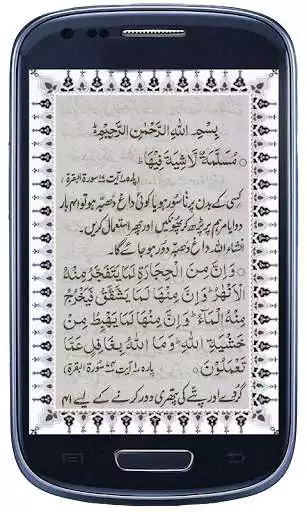 بِسْمِ اللهِ الرَّحْمٰنِ الرَّحِيْمِ
مُسَلَّمَةٌ لَّاشِيَةَ فِيْهَا ؕ
(پارہ ۱ آیت سورۃ البقرۃ)
کسی کے بدن پر ناسور ہو یا کوئی داغ دھبّہ ہو تو ۴۱ بار
دوا یا مرہم پر پڑھ کر پھونکیں اور پھر استعمال کریں۔
انشاء اللہ داغ دھبّہ دور ہو جائے گا۔
وَاِنَّ مِنَ الْحِجَارَةِ لَمَا يَتَفَجَّرُ مِنْهُ
الْاَنْهٰرُ ؕ وَاِنَّ مِنْهَا لَمَا يَشَّقَّقُ فَيَخْرُجُ
مِنْهُ الْمَآءُ ؕ وَاِنَّ مِنْهَا لَمَا يَهْبِطُ مِنْ
خَشْيَةِ اللهِ ؕ وَمَا اللهُ بِغَافِلٍ عَمَّا
تَعْمَلُوْنَ پارہ ۱ آیت سورۃ البقرۃ)
گردے اور پتے کی پتھری دور کرنے کے لیے ۴۱